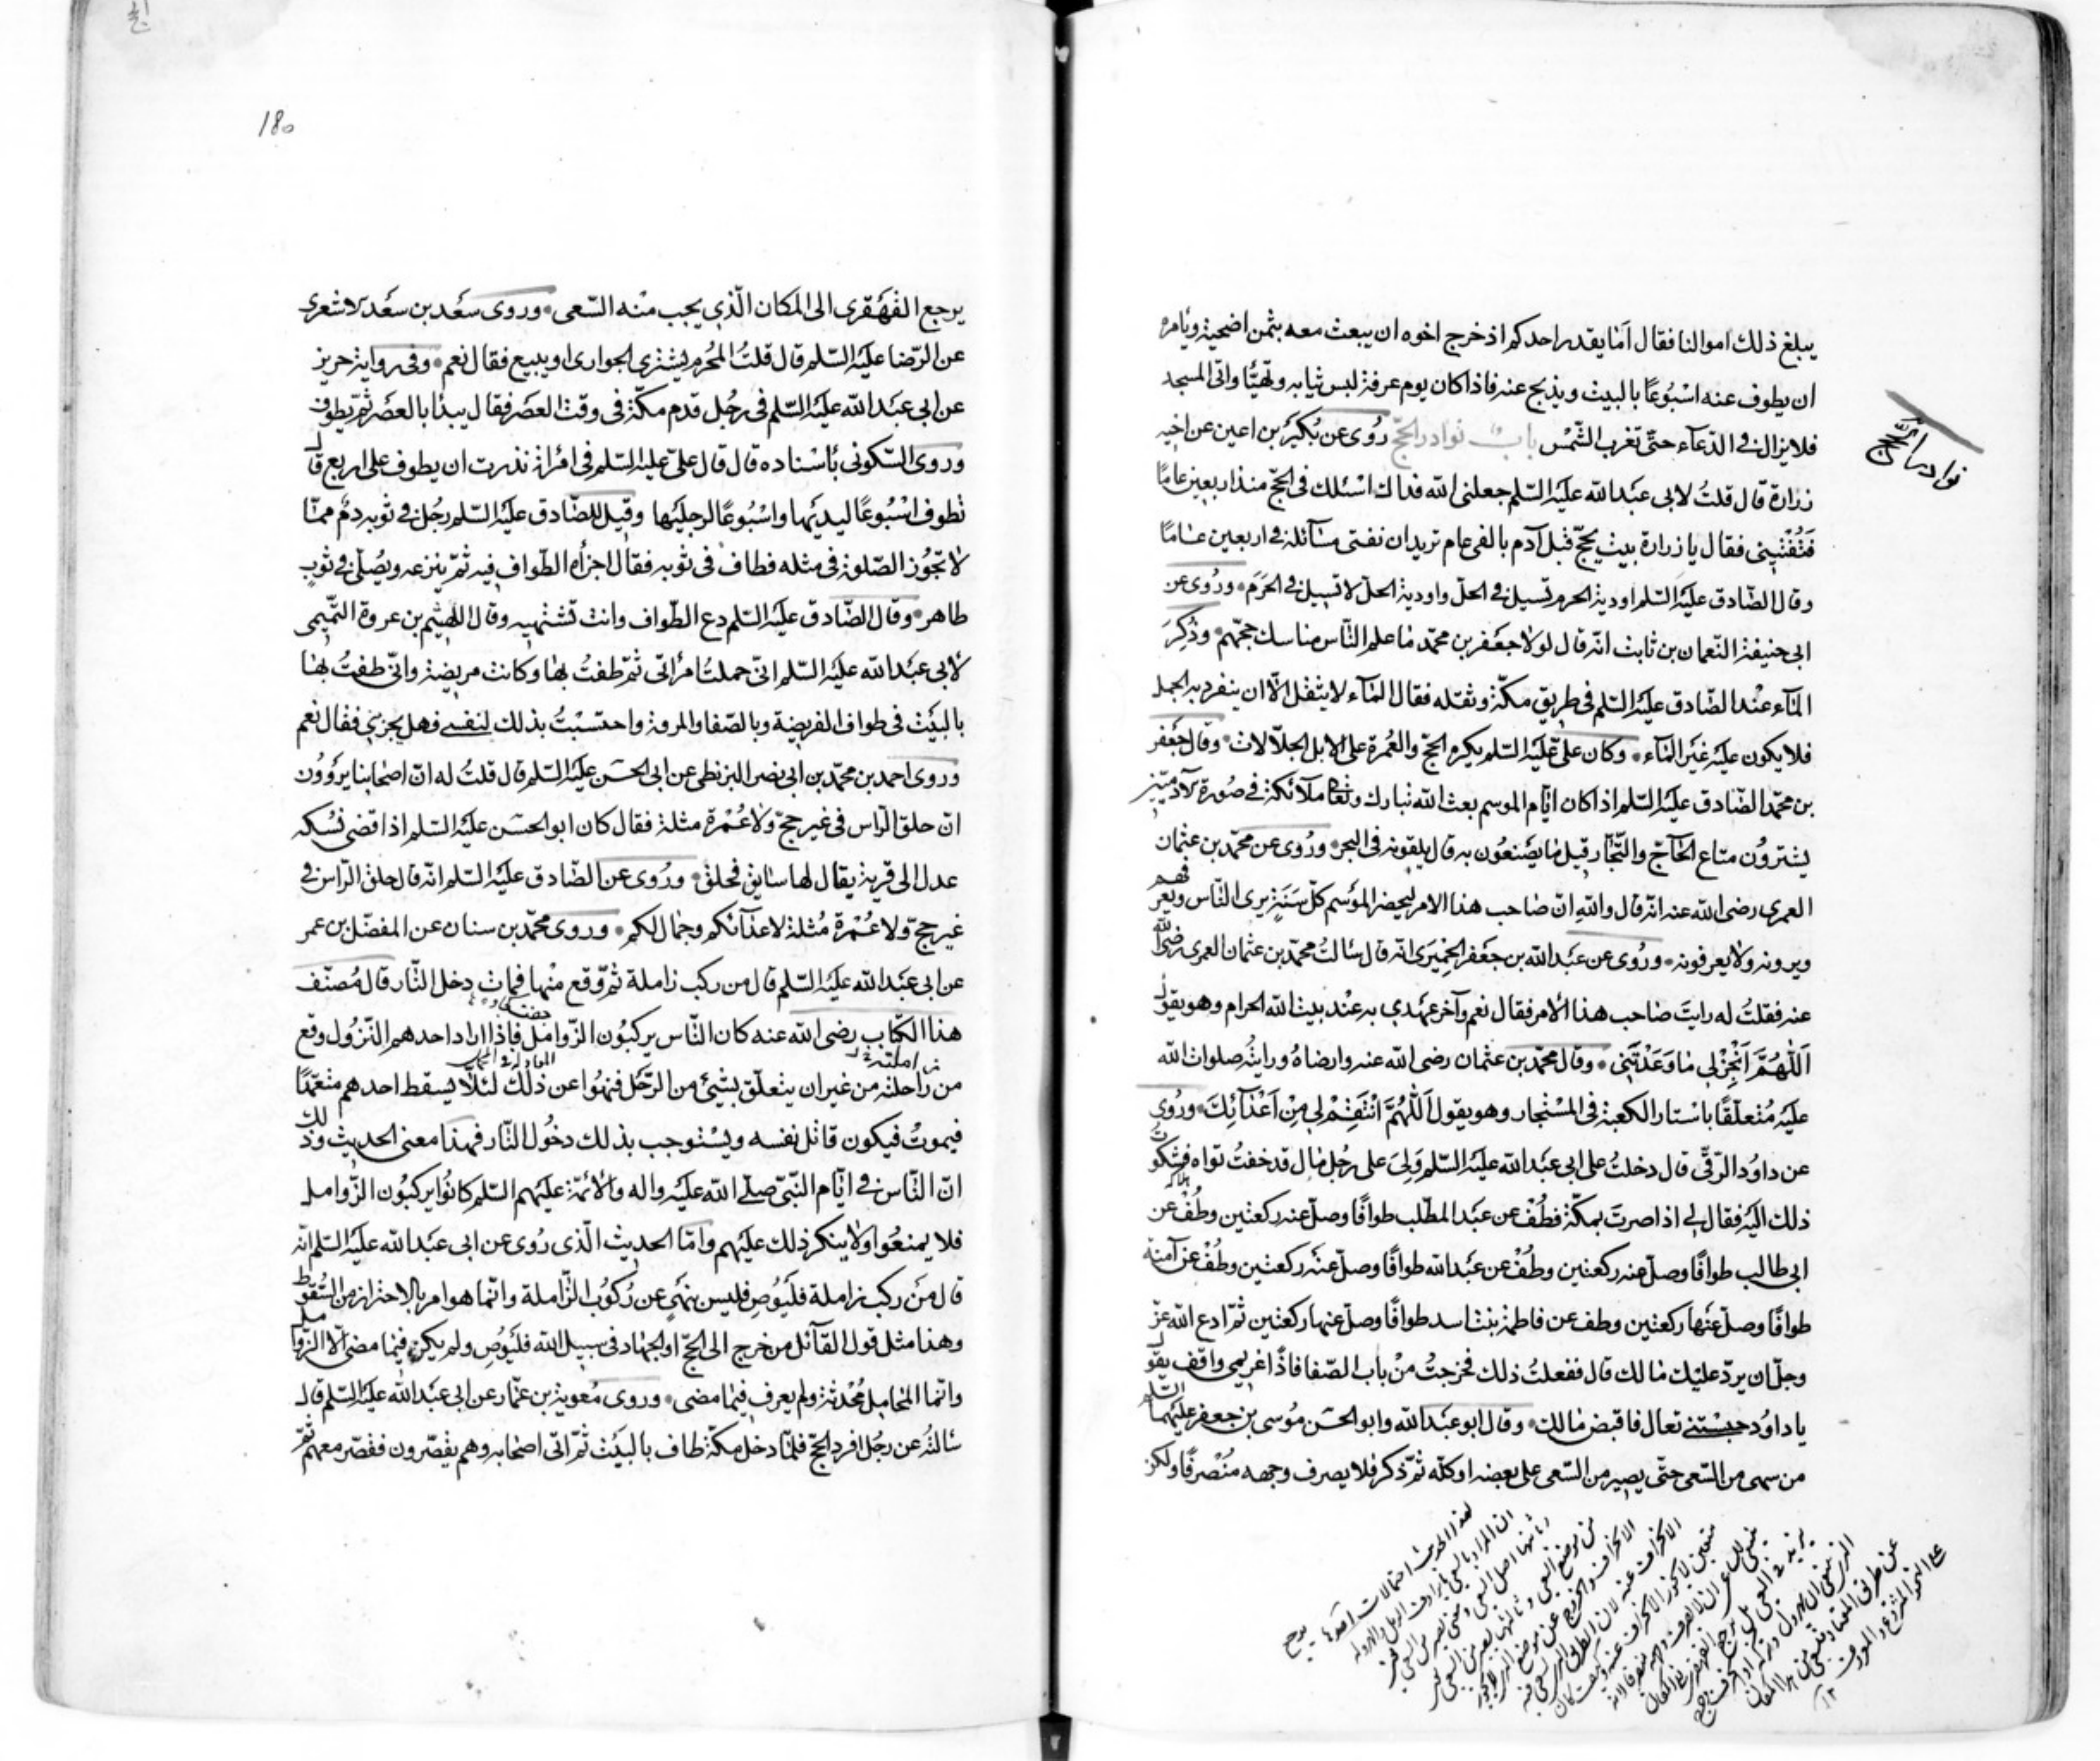 يبلغ ذلك اموالنا فقال اما يقدر احدكم اذ خرج اخوه ان يبعث معه بثمن اضحية ويأمره
ان يطوف عنه اسبوعًا بالبيت ويذبح عنه فاذا كان يوم عرفة لبس ثيابه وتهيّأ واتى المسجد
فلا يزال في الدّعآء حتّى تغرب الشّمس باب نوادر الحجّ رُوى عن بُكير بن اعين عن اخيه
نوادر الحج
زرارة قال قلتُ لابى عبد الله عليه السّلم جعلنى الله فداك اسئلك فى الحجّ منذ اربعين عامًا
فتُفتينى فقال يا زرارة بيت يحجّ قبل آدم بالفى عام تريد ان تفتى مسآئله في اربعين عامًا
وقال الصّادق عليه السّلم اودية الحرم تسيل في الحلّ واودية الحلّ لا تسيل في الحَرَم ورُوى عن
ابى حنيفة النّعمان بن ثابت انّه قال لولا جعفر بن محمّد ما علم النّاس مناسك حجّهم وذُكِرَ
المآء عند الصّادق عليه السّلم فى طريق مكّة وثقله فقال المآء لا يثقل الّا ان ينفرد به الجمل
فلا يكون عليه غير المآء وكان علىّ عليه السّلم يكره الحجّ والعُمرة على الابل الجلّالات وقال جعفر
بن محمّد الصّادق عليه السّلم اذا كان ايّام الموسم بعث الله تبارك وتعالى ملآئكة في صورة الآدميّين
يشترون متاع الحآجّ والتّجّار قيل ما يصنعُون به قال يلقونه فى البحر ورُوى عن محمّد بن عثمان
العمرى رضى الله عنه انّه قال والله انّ صاحب هذا الامر ليحضر الموسم كلّ سَنَةٍ يرى النّاس ويعرفهم
ويرونه ولا يعرفونه ورُوى عن عبد الله بن جعفر الحِميَرى انّه قال سَالتُ محمّد بن عثمان العمرى رضى الله
عنه فقلتُ له رايتَ صاحب هذا الامر فقال نعم وآخر عهدي به عند بيت الله الحرام وهو يقول
اَللّٰهُمَّ اَنْجِزْ لِي مَا وَعَدْتَنِي وقال محمّد بن عثمان رضى الله عنه وارضاهُ ورايتُه صلوات الله
عليه مُتعلّقًا باستار الكعبة فى المستجار وهو يقول اَللّٰهُمَّ انْتَقِمْ لِي مِنْ اَعْدَآئِكَ ورُوى
عن داوُد الرّقّى قال دخلتُ على ابى عبد الله عليه السّلم وَلِىَ على رجُل مال قد خفتُ تواه فشكوتُ
ذلك اليه فقال لي اذا صرتَ بمكّة فطُفْ عن عبد المطّلب طوافًا وصلّ عنه ركعتين وطُفْ عن
ابى طالب طوافًا وصلّ عنه ركعتين وطُفْ عن عبد الله طوافًا وصلّ عنه ركعتين وطُفْ عن آمنة
طوافًا وصلّ عنها ركعتين وطف عن فاطمة بنت اسد طوافًا وصلّ عنها ركعتين ثمّ ادع الله عزّ
وجلّ ان يردّ عليك مالك قال ففعلتُ ذلك فخرجتُ من باب الصّفا فاذًا غريمي واقف يقول
يا داوُد حبستنى تعال فاقبض مالك وقال ابو عبد الله وابو الحسَن مُوسى بن جعفر عليهما السّلم
من سهى من السّعى حتّى يصير من السّعى على بعضه او كلّه ثمّ ذكر فلا يصرف وجهه مُنصرفًا ولكن
يرجع
180
يرجع القهقرى الى المكان الّذي يجب منه السّعى وروى سعد بن سعد الاشعرى
عن الرّضا عليه السّلم قال قلتُ المُحرم يشترى الجوارى او يبيع فقال نعم وفى رواية حريز
عن ابى عبد الله عليه السّلم فى رجُل قدم مكّة فى وقت العصر فقال يبدأ بالعصر ثمّ يطوف
وروى السّكونى باسناده قال قال علىّ عليه السّلم فى امرأة نذرت ان يطوف على اربع قال
تطوف اسبُوعًا ليديها واسبُوعًا لرجليها وقيل للصّادق عليه السّلم رجُل في ثوبه دم ممّا
لا تجُوز الصّلوة فى مثله فطاف فى ثوبه فقال اجزأه الطّواف فيه ثمّ ينزعه ويُصلّى في ثوبٍ
طاهر وقال الصّادق عليه السّلم دع الطّواف وانت تشتهيه وقال الهيثم بن عروة التّميمى
لأبى عبد الله عليه السّلم انّى حملتُ امرأتى ثمّ طفتُ بها وكانت مريضة وانّى طفتُ بها
بالبيت فى طواف الفريضة وبالصّفا والمروة واحتسبتُ بذلك لنفسى فهل يجزىنى فقال نعم
وروى احمد بن محمّد بن ابى نصر البزنطى عن ابى الحسَن عليه السّلم قال قلتُ له انّ اصحابنا يروُون
انّ حلق الرّاس فى غير حجّ ولا عُمرة مثلة فقال كان ابو الحسَن عليه السّلم اذا قضى نُسُكه
عدل الى قرية يقال لها ساية فحلق ورُوى عن الصّادق عليه السّلم انّه قال حلق الرّاس في
غير حجّ ولا عُمرة مُثلة لاعدآئكم وجمال لكم وروى محمّد بن سنان عن المفضّل بن عمر
عن ابى عبد الله عليه السّلم قال من ركب زاملة ثمّ وقع منها فمات دخل النّار قال مُصنّف
هذا الكتاب رضى الله عنه كان النّاس يركبُون الزّوامل فاذا اراد احدهم النّزُول وقع
من راحلته من غير ان يتعلّق بشئ من الرّحل فنهُوا عن ذلك لئلّا يسقط احدهم متعمّدًا
زاملته
فيموتُ فيكون قاتل نفسه ويستوجب بذلك دخُول النّار فهذا معنى الحديث وذلك
انّ النّاس في ايّام النّبىّ صلّى الله عليه واله والأئمّة عليهم السّلم كانُوا يركبُون الزّوامل
فلا يمنعُوا ولا ينكر ذلك عليهم وامّا الحديث الّذى رُوى عن ابى عبد الله عليه السّلم انّه
قال من ركب زاملة فليُوصِ فليس بنهىٍ عن رُكُوب الزّاملة وانّما هو امر بالاحتراز من السُّقوط
وهذا مثل قول القآئل من خرج الى الحجّ او الجهاد فى سبيل الله فليُوصِ ولم يكن فيما مضى الّا الزّوامل
وانّما المحامل مُحْدثة ولم يعرف فيما مضى وروى مُعوية بن عمّار عن ابى عبد الله عليه السّلم قال
سَالتُه عن رجُل افرد الحجّ فلمّا دخل مكّة طاف بالبيت ثمّ اتى اصحابه وهم يقصّرون فقصّر معهم ثمّ